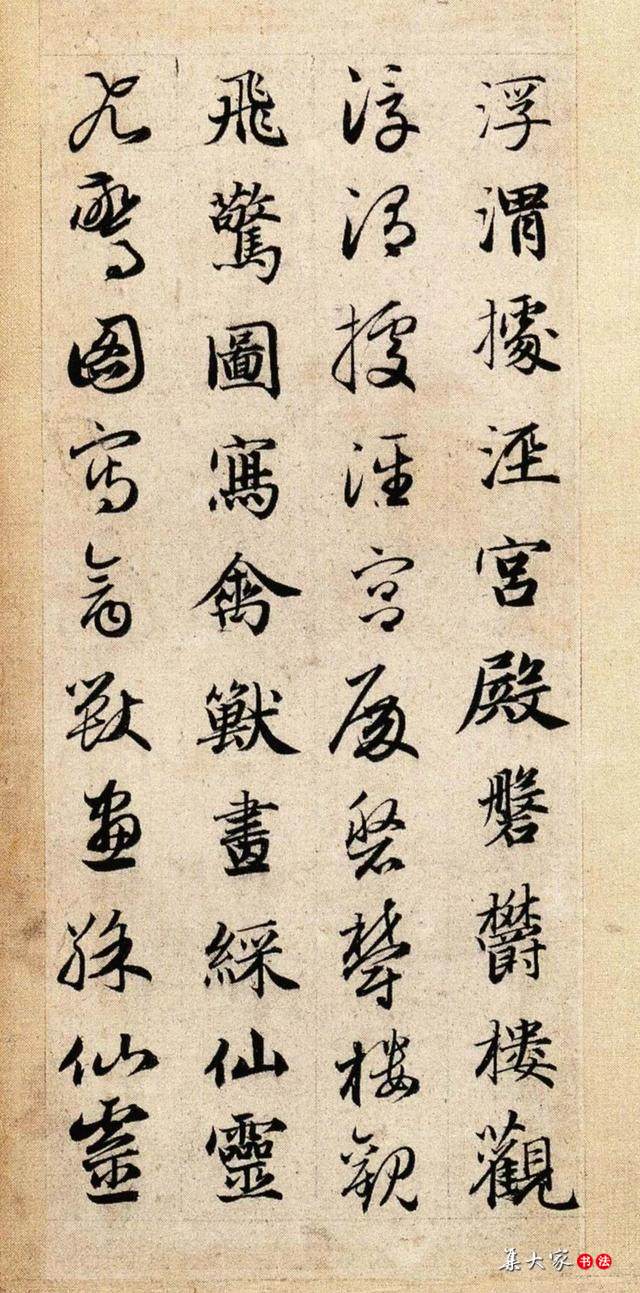 浮渭據涇宮殿磐欝樓觀
浮渭據涇宮殿磐欝樓觀
飛驚圖寫禽獸畫綵仙靈
飛驚圖寫禽獸畫綵仙靈
集大家书法